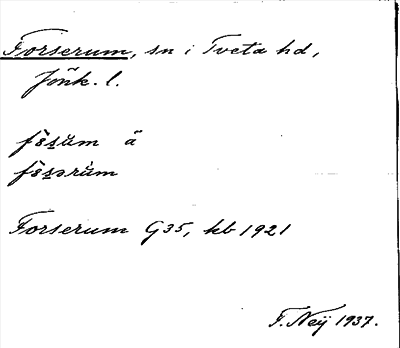 Forserum, sn i Tveta hd,
Jönk. l.
fò̀s̱ŭm ä
fò̀s̱ərŭm
Forserum G35, kb 1921
F. Neÿ 1937.